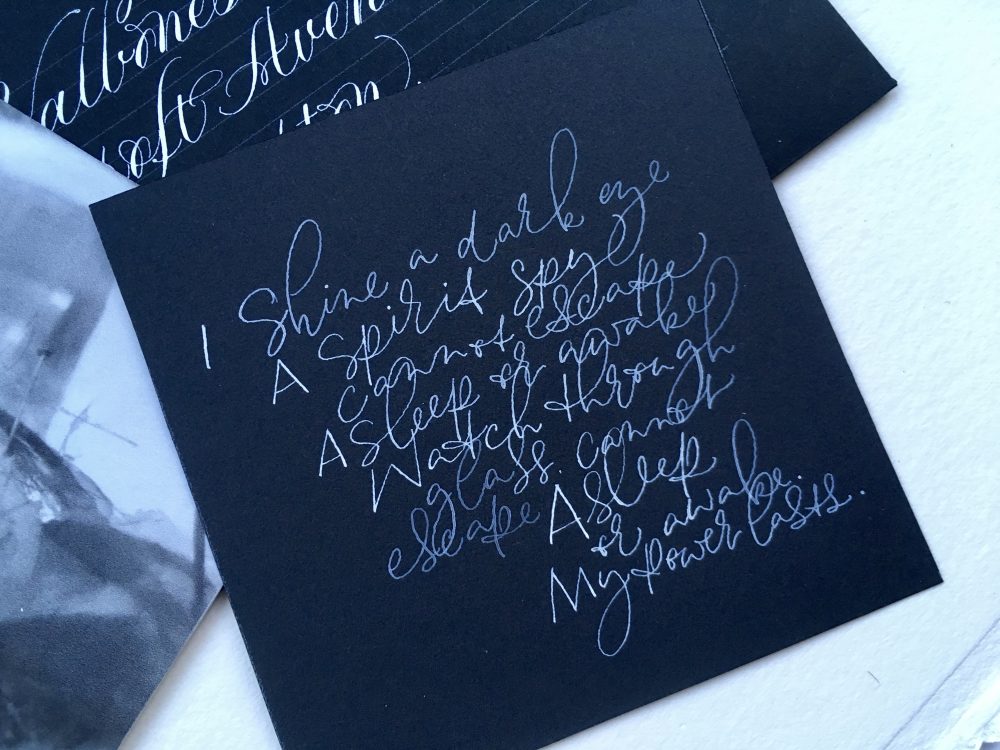 oft Aven
I Shine a dark eye
A Spirit Spy
cannot escape
Asleep or awake
Watch through
glass. cannot
escape Asleep
or awake.
My power lasts.